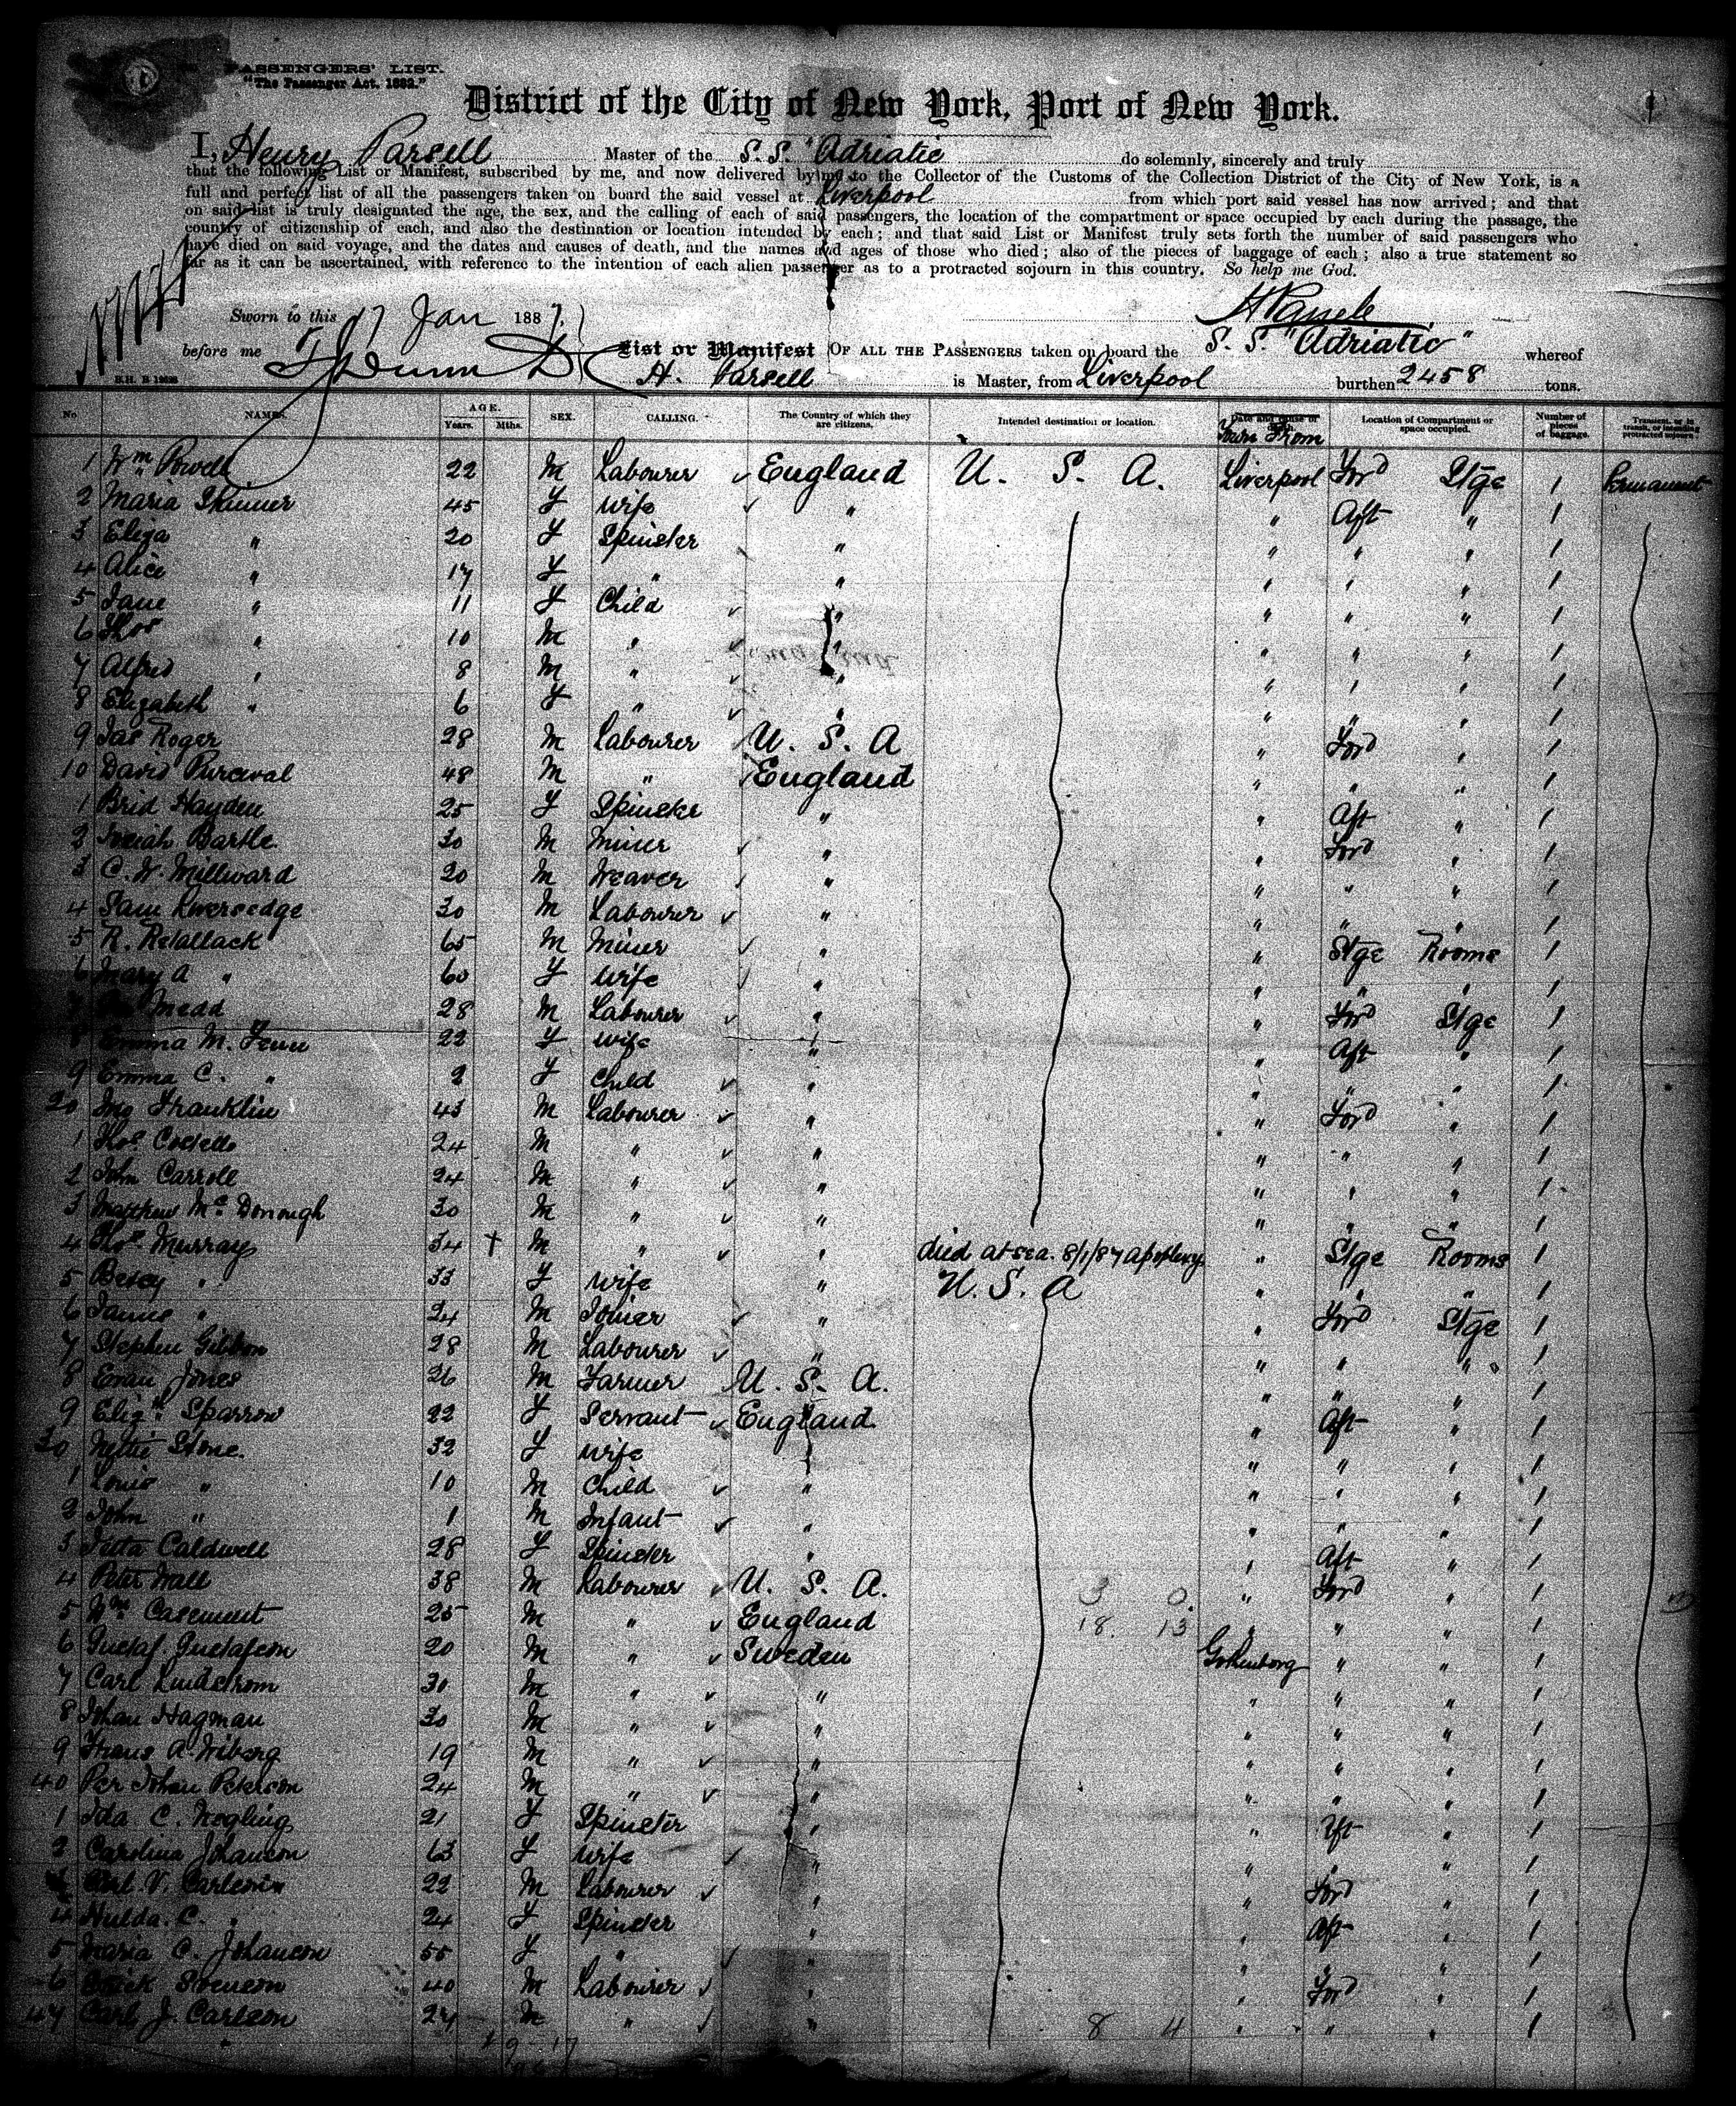 PASSENGERS' LIST.
"The Passenger Act. 1882."
District of the City of New York, Port of New York.
I, Henry Parsell Master of the S.S. "Adriatic do solemnly, sincerely and truly
that the following List or Manifest, subscribed by me, and now delivered by me to the Collector of the Customs of the Collection District of the City of New York, is a
full and perfect list of all the passengers taken on board the said vessel at Liverpool from which port said vessel has now arrived; and that
on said list is truly designated the age, the sex, and the calling of each of said passengers, the location of the compartment or space occupied by each during the passage, the
country of citizenship of each, and also the destination or location intended by each; and that said List or Manifest truly sets forth the number of said passengers who
have died on said voyage, and the dates and causes of death, and the names and ages of those who died; also of the pieces of baggage of each; also a true statement so
far as it can be ascertained, with reference to the intention of each alien passenger as to a protracted sojourn in this country. So help me God.
Sworn to this 17 Jan 1887 H Parsell
before me List or Manifest OF ALL THE PASSENGERS taken on board the S. S. "Adriatic" whereof
H. Parsell is Master, from Liverpool burthen 2458 tons.
No NAMES. AGE. Years. Mths. SEX. CALLING. The Country of which they are citizens. Intended destination or location. Date and cause of death. From Location of Compartment or space occupied. Number of pieces of baggage. Transient, or in transit, or intending protracted sojourn.
1 Wm Powell 22 M Labourer England U. S. A. Liverpool Ford Stge 1 Permanent
2 Maria Skinner 45 F Wife " " Aft " 1
3 Eliza " 20 F Spinster " " " " 1
4 Alice " 17 F " " " " " 1
5 Jane " 11 F Child " " " " 1
6 Thos " 10 M " " " " " 1
7 Alfred " 8 M " " " " " 1
8 Elizabeth " 6 F " " " " " 1
9 Jas Roger 28 M Labourer U. S. A " Ford " 1
10 David Purcival 48 M " England " " " 1
1 Brid Hayden 25 F Spinster " " Aft " 1
2 Josiah Bartle 30 M Miner " " Ford " 1
3 C. W. Millward 20 M Weaver " " " " 1
4 Sam Liversedge 30 M Labourer " " " " 1
5 R. Retallack 65 M Miner " " Stge Rooms 1
6 Mary A " 60 F Wife " " " " 1
7 Medd 28 M Labourer " " Ford Stge 1
8 Emma M. Fenn 22 F Wife " " Aft " 1
9 Emma C. " 2 F Child " " " " 1
20 Jno Franklin 43 M Labourer " " Ford " 1
1 Thos Costello 24 M " " " " " 1
2 John Carroll 24 M " " " " " 1
3 Matthew Mc Donough 30 M " " " " " 1
4 Thos Murray 34 † M " " died at sea. 8/1/87 apoplexy " Stge Rooms 1
5 Betsy " 33 F Wife " U. S. A " " " 1
6 James " 24 M Joiner " " Ford Stge 1
7 Stephen Gibbon 28 M Labourer " " " " 1
8 Evan Jones 26 M Farmer U. S. A. " " " 1
9 Elizth Sparrow 22 F Servant England " Aft " 1
30 Nettie Stone. 32 F Wife " " " " 1
1 Louis " 10 M Child " " " " 1
2 John " 1 M Infant " " " " 1
3 Caldwell 28 F Spinster " " Aft " 1
4 Peter Wall 38 M Labourer U. S. A. 3 0. " Ford " 1
5 Wm Casement 25 M " England 18. 13 " " " 1
6 Gustaf Gustafson 20 M " Sweden Gothenborg " " 1
7 Carl Lindstrom 30 M " " " " " 1
8 Johan Hagman 30 M " " " " " 1
9 Frans A. Wiberg 19 M " " " " " 1
40 Per Johan Peterson 24 M " " " " " 1
1 Ida C. Negling 21 F Spinster " " Aft " 1
2 Carolina Johanson 63 F Wife " " " " 1
3 Carl V. Carlson 22 M Labourer " " Ford " 1
4 Hulda. C. " 24 F Spinster " " Aft " 1
5 Maria C. Johanson 55 F " " " " " 1
6 Svenson 40 M Labourer " " Ford " 1
47 Carl J. Carlson 24 M " " 8 4 " " " 1